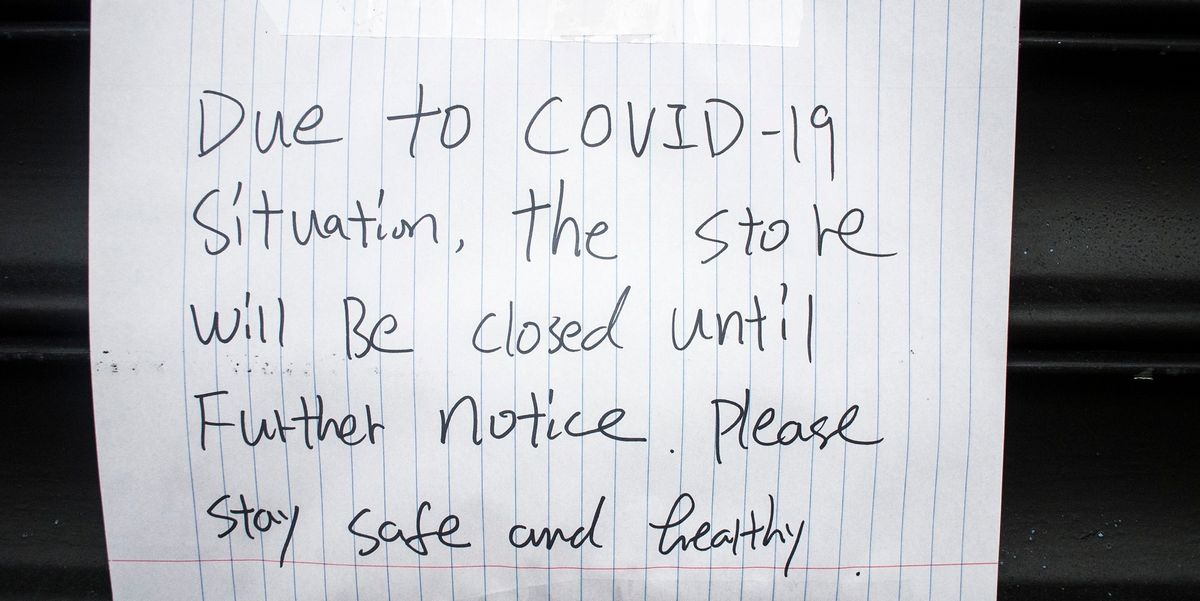 Due to COVID-19
Situation, the store
will Be closed until
Further notice. Please
stay safe and healthy.